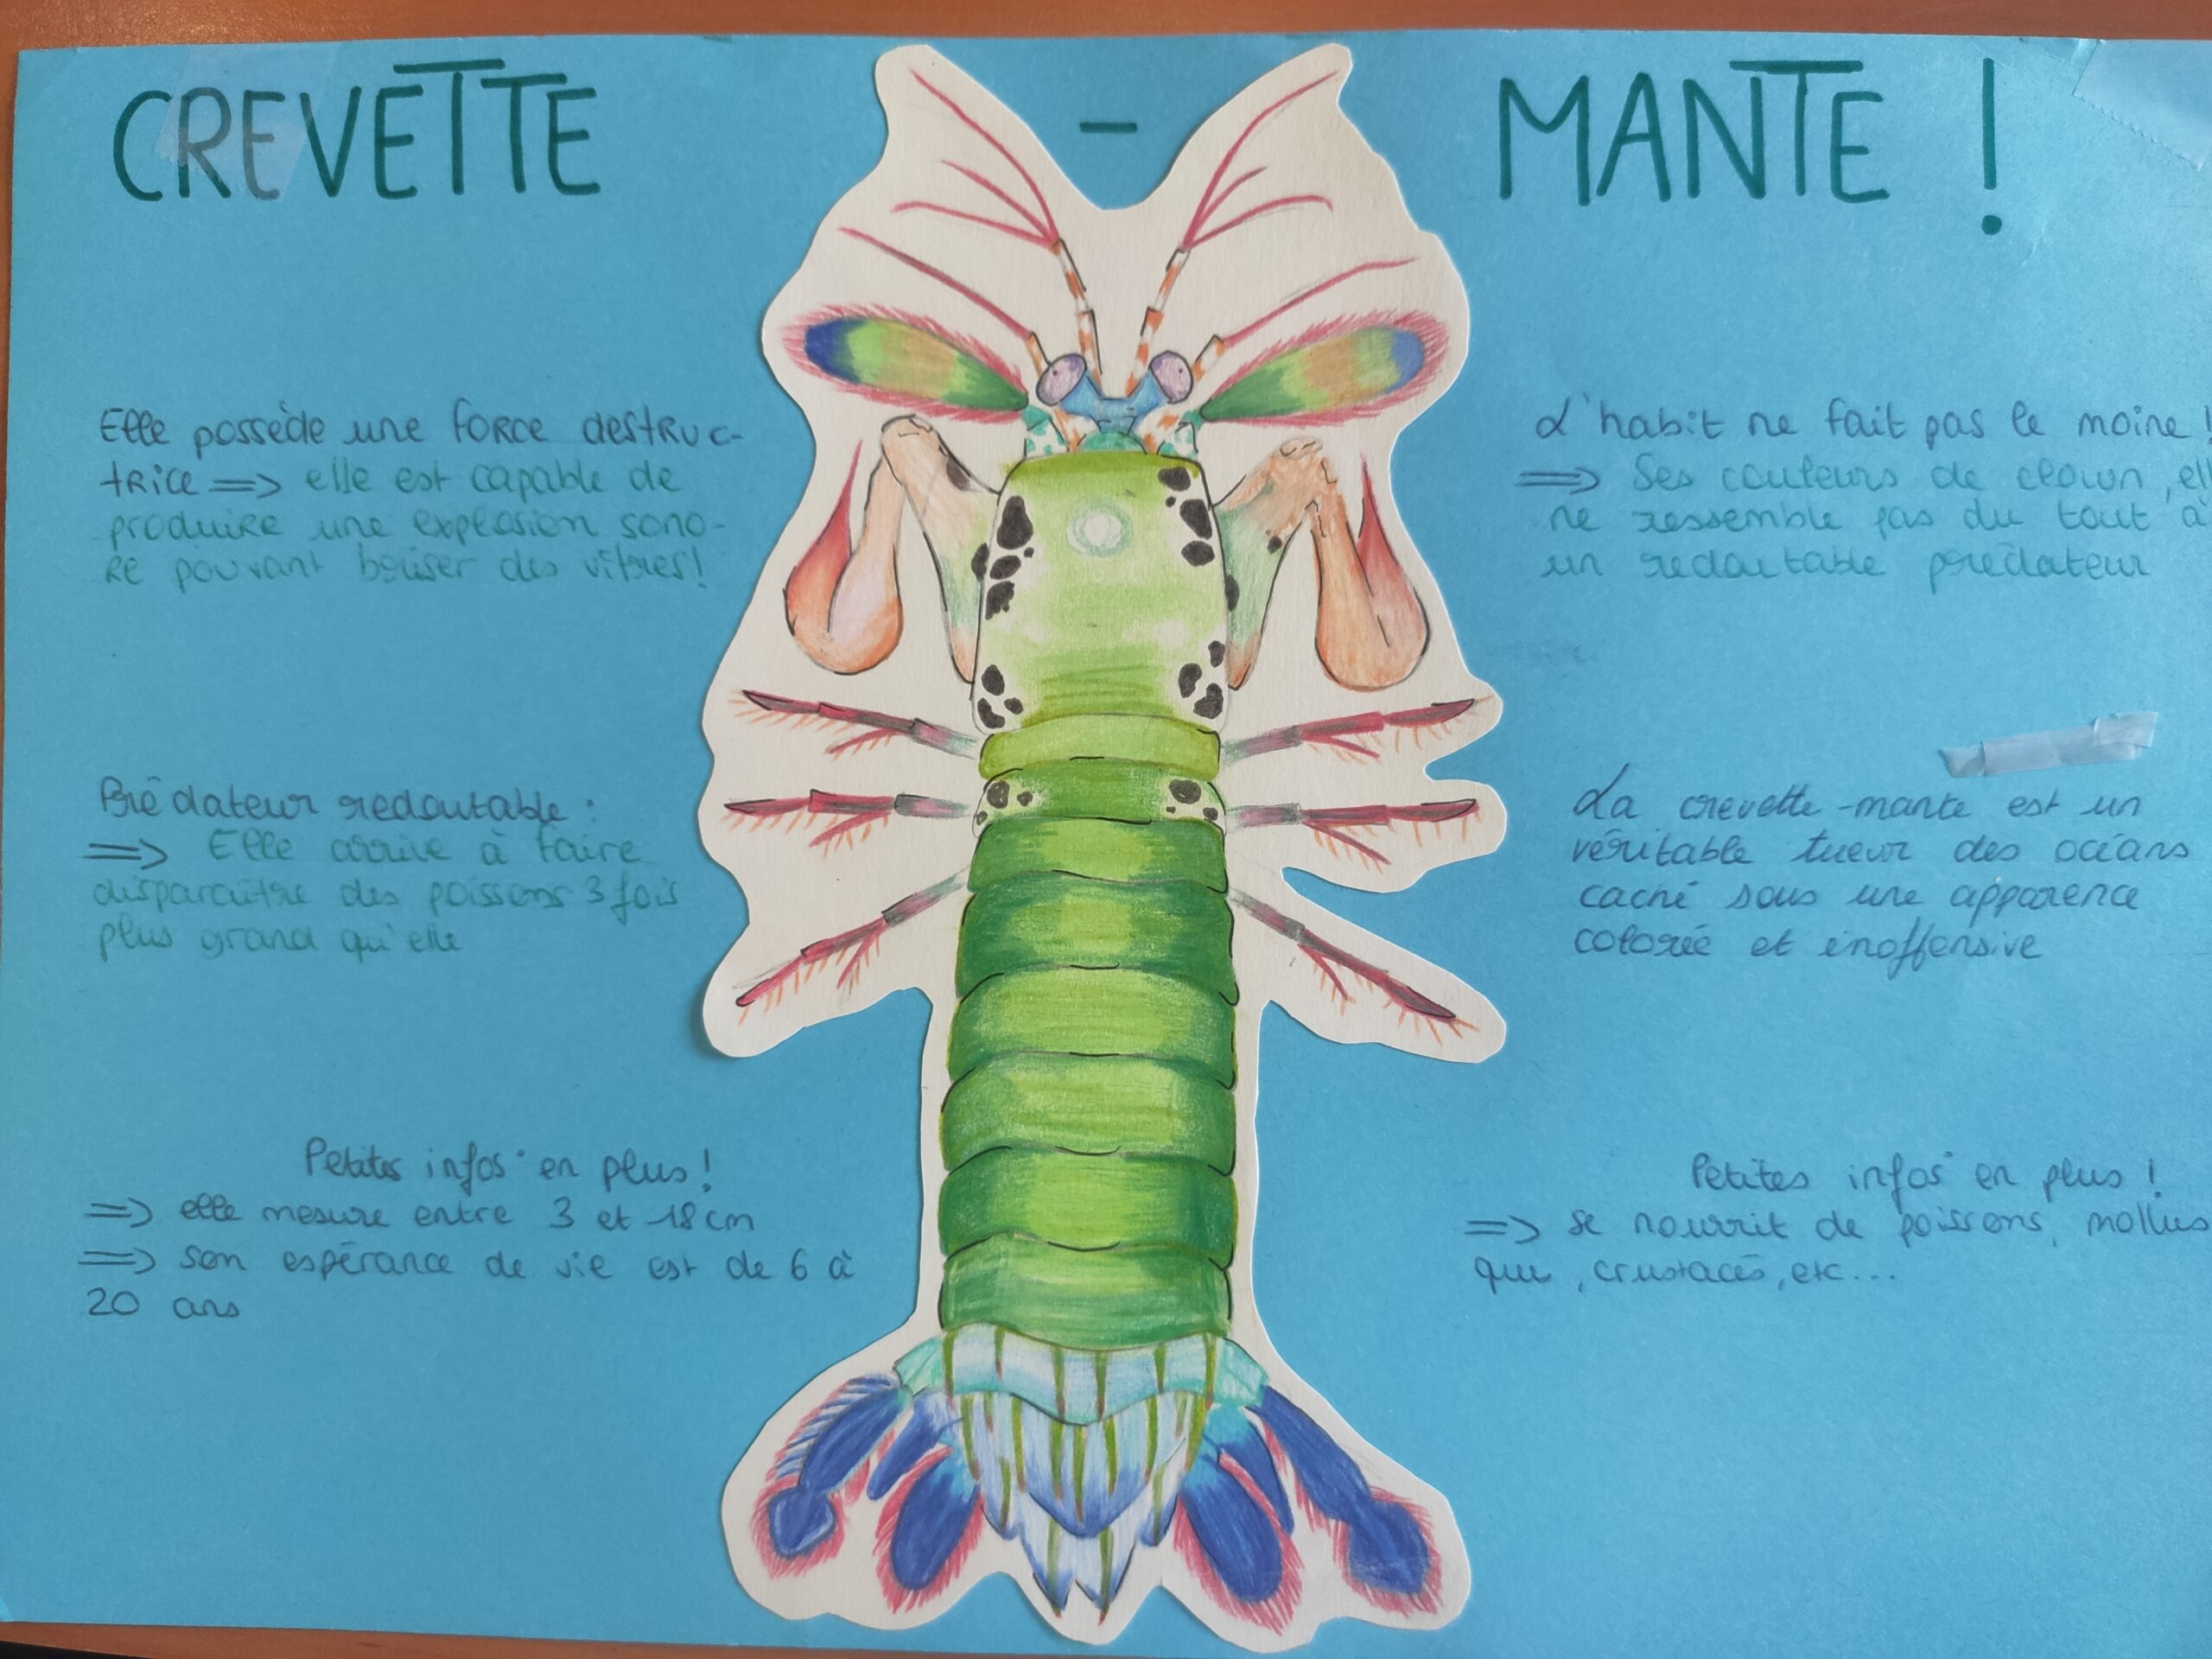 CREVETTE - MANTE !
Elle possède une force destruc-
trice => elle est capable de
produire une explosion sono-
re pouvant briser des vitres!
Prédateur redoutable :
=> Elle arrive à faire
disparaître des poissons 3 fois
plus grand qu'elle
Petites infos en plus !
=> elle mesure entre 3 et 18 cm
=> son espérance de vie est de 6 à
20 ans
L'habit ne fait pas le moine !
=> Ses couleurs de clown, ell
ne ressemble pas du tout à
un redoutable prédateur
La crevette-mante est un
véritable tueur des océans
caché sous une apparence
colorée et inoffensive
Petites infos en plus !
=> se nourrit de poissons, mollus
que, crustacés, etc...